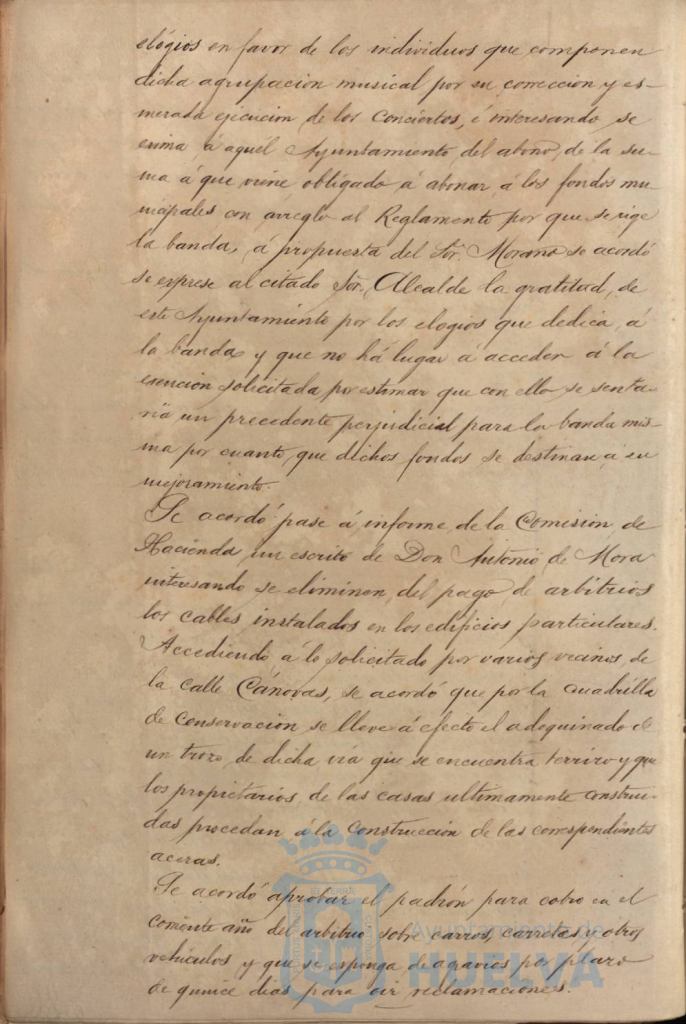 elógios en favor de los individuos que componen
dicha agrupación musical por su corrección y es-
merada ejecución de los Conciertos, é interesando se
exima á aquél Ayuntamiento del abono de la su-
ma á que viene obligado á abonar á los fondos mu-
nicipales con arreglo al Reglamento por que se rige
la banda, á propuesta del Sor. Morano se acordó
se exprese al citado Sor. Alcalde la gratitud de
este Ayuntamiento por los elogios que dedica á
la banda y que no há lugar á acceder á la
exención solicitada por estimar que con ello se senta-
ría un precedente perjudicial para la banda mis-
ma por cuanto que dichos fondos se destinan á su
mejoramiento.
Se acordó pase á informe de la Comisión de
Hacienda un escrito de Don Antonio de Mora
interesando se eliminen del pago de arbitrios
los cables instalados en los edificios particulares.
Accediendo á lo solicitado por varios vecinos de
la calle Cánovas, se acordó que por la cuadrilla
de conservación se lleve á efecto el adoquinado de
un trozo de dicha vía que se encuentra terrizo y que
los propietarios de las casas ultimamente construi-
das procedan á la construcción de las correspondientes
aceras.
Se acordó aprobar el padrón para cobro en el
corriente año del arbitrio sobre carros, carretas y otros
vehículos y que se esponga de agravios por plazo
de quince dias para oir reclamaciones.
Ayuntamiento de
HUELVA